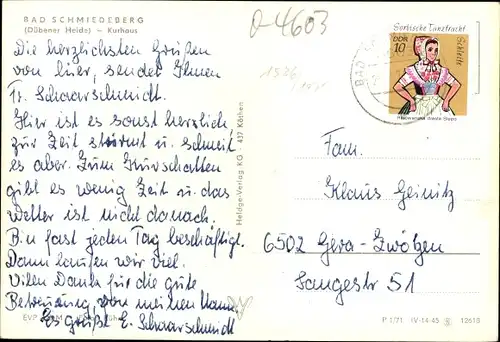 BAD SCHMIEDEBERG
(Dübener Heide) – Kurhaus
Die herzlichsten Grüßen
von hier, sendet Ihnen
Fr. Schaarschmidt.
Hier ist es sonst herrlich
zur Zeit stürmt u. schneit
es aber. Zum Kurschatten
gibt es wenig Zeit u. das
Wetter ist nicht danach.
Bin fast jeden Tag beschäftigt.
Dann laufen wir viel.
Vilen Dank für die gute
Betreuung von meinen Mann.
Es grüßt E. Schaarschmidt
EVP
Heldge-Verlag KG · 437 Köthen
Q-4603
Sorbische Tanztracht
Schleife
DDR
10
BAD
Fam.
Klaus Geinitz
6502 Gera-Zwötzen
Langestr 51
P 1/71 IV-14-45 12618